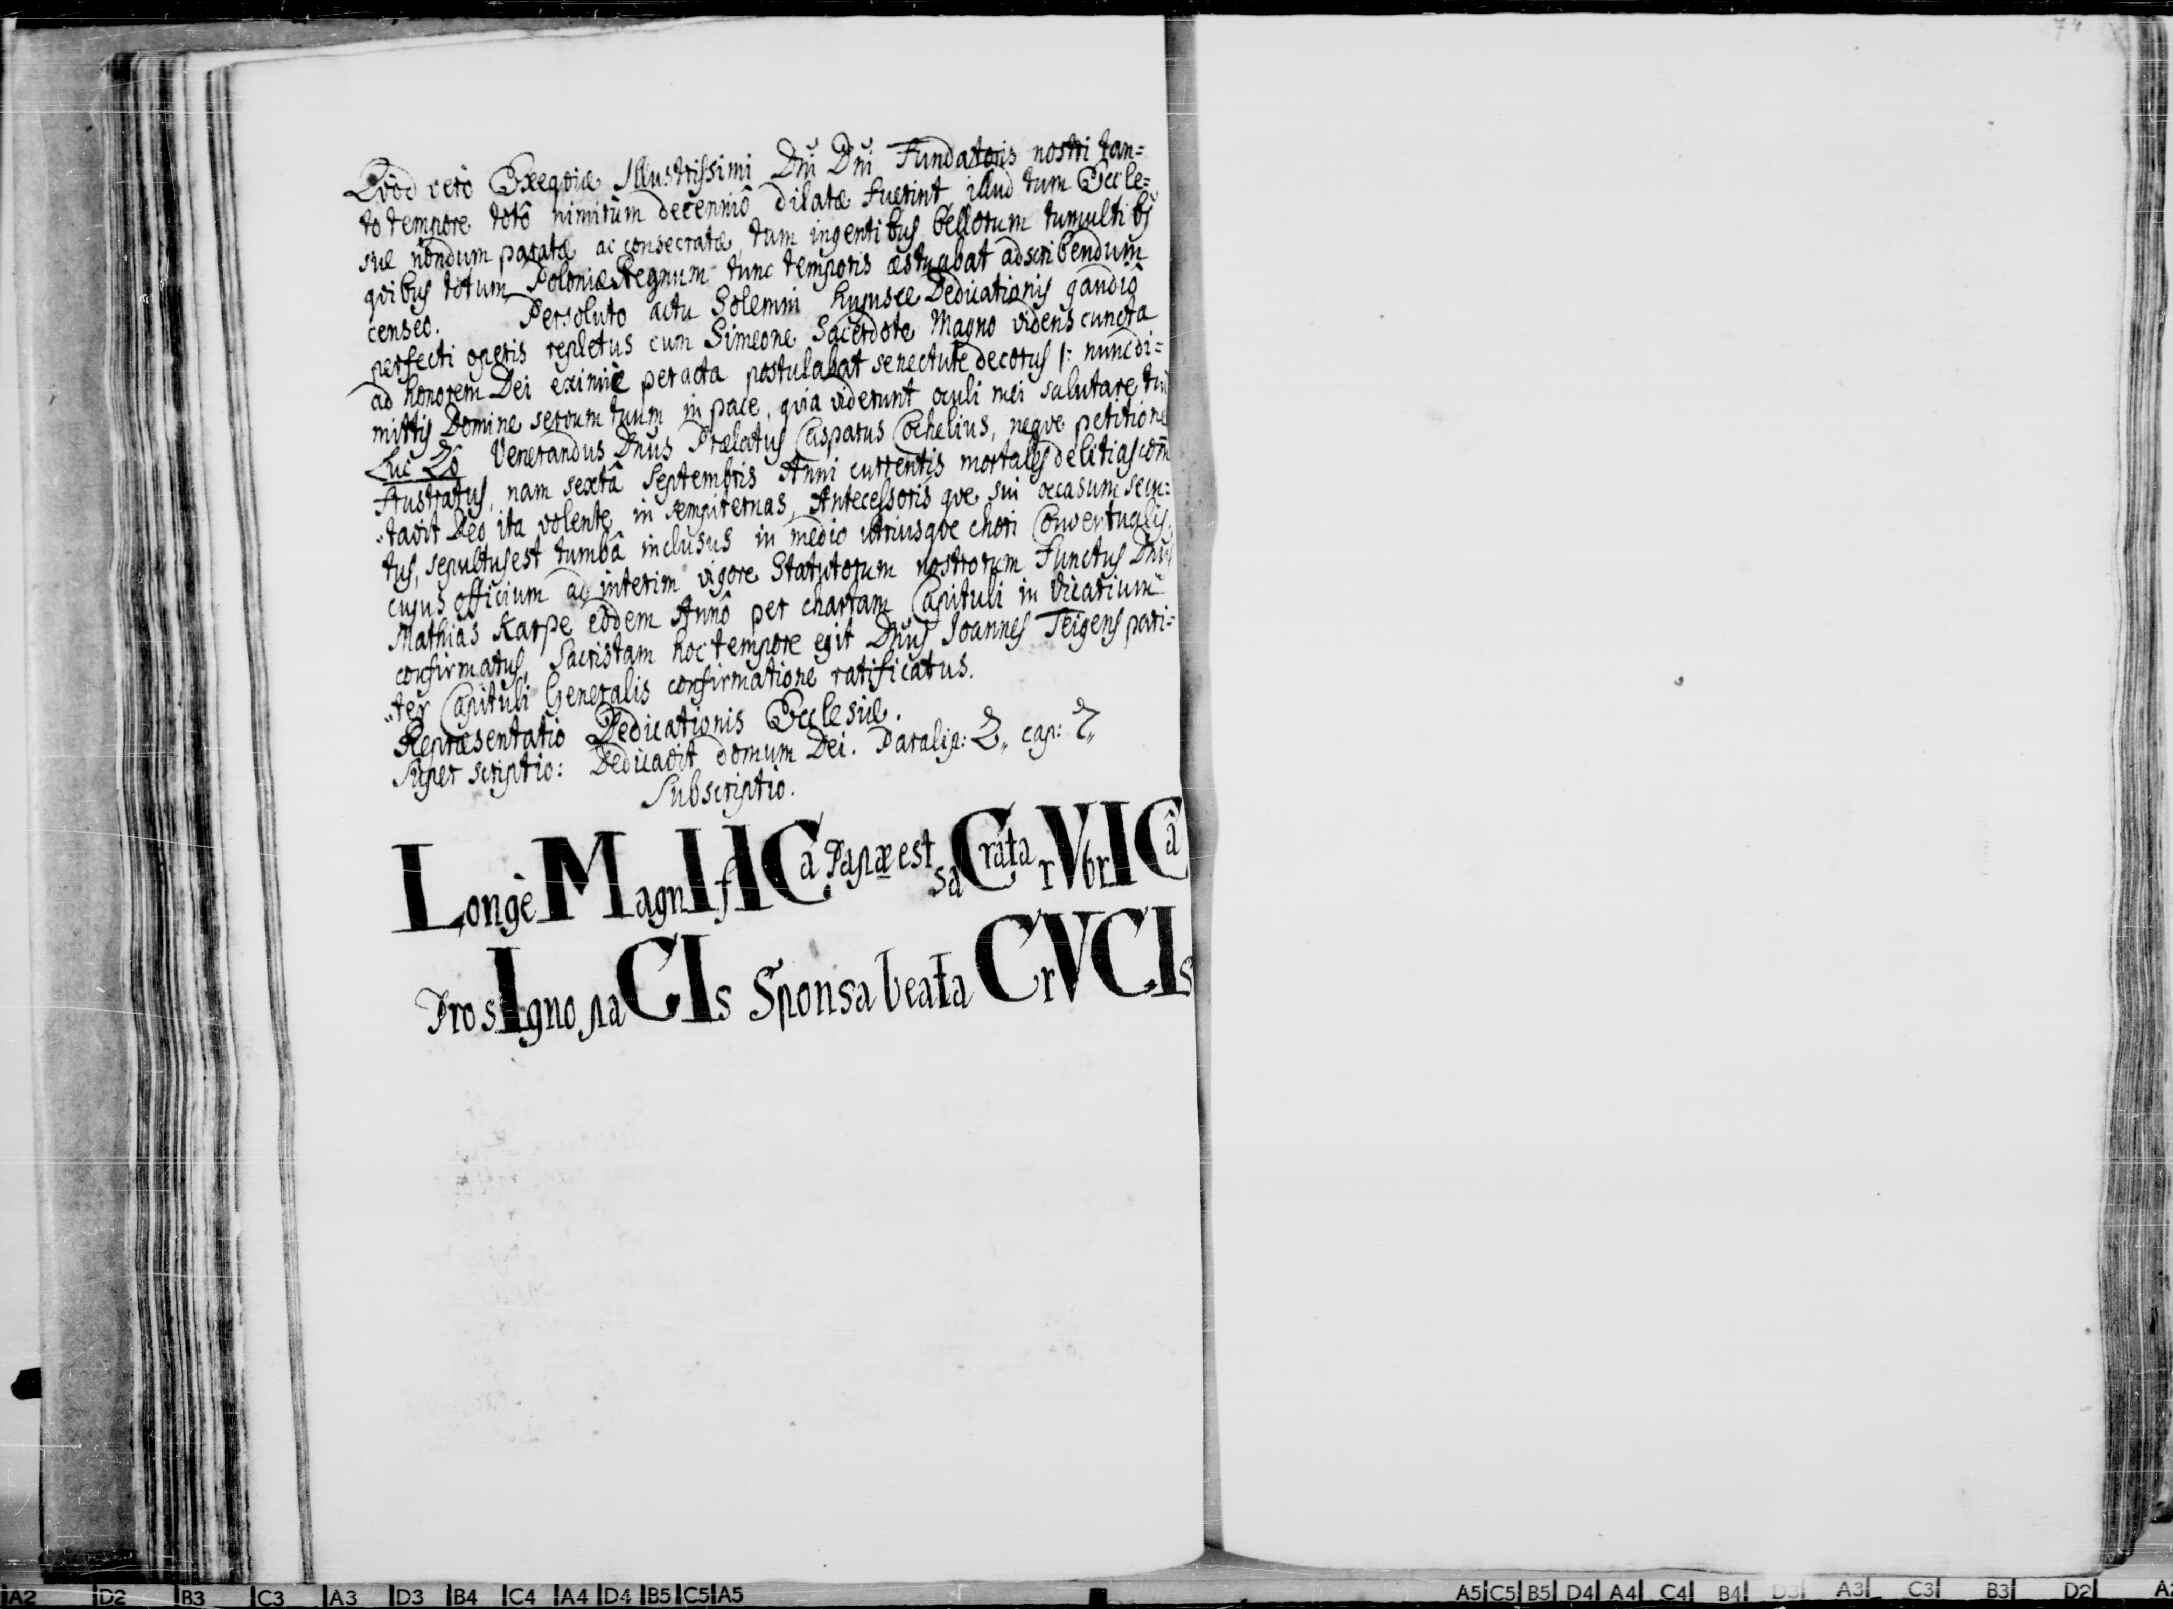 74
Qvod verò Exeqviæ Illustrissimi Dni Dni Fundatoris nostri tan=
to tempore totô nimirùm decenniô dilatæ fuerint, illud tum Eccle=
siæ nondum paratæ ac consecratæ, tum ingentibus bellorum tumultibꝰ
qvibus totum Poloniæ Regnum tunc temporis æstuabat adscribendum
censeo. Persoluto actu Solemni hujusce Dedicationis gaudiô
perfecti operis repletus cum Simeone Sacerdote Magno videns cuncta
ad honorem Dei eximiè peracta postulabat senectute decorus /: nunc di=
mittis Domine servum tuum in pace, qvia viderunt oculi mei salutare tuũ
Luc 2o Venerandus Dnus Prælatus Casparus Cochelius, neqve petitione
frustratus, nam sextâ Septembris Anni currentis mortales delitias com̃
„tavit Deo ita volente in sempiternas, Antecessorisqve sui occasum secu=
tus, sepultus est tumbâ inclusus in medio utriusqve chori Conventualis.
cujus officium ad interim vigore Statutorum nostrorum functus Dnus
Mathias Karpe eodem Annô per chartam Capituli in Vicarium
confirmatus, Sacristam hoc tempore egit Dnus Joannes Teigens pari=
„ter Capituli Generalis confirmatione ratificatus.
Repræsentatio Dedicationis Ecclesiæ.
Super scriptio: Dedicavit domum Dei. Paralip: 2„ cap: 7„
Subscriptio.
Longè MagnIfICa Papæ est saCrata rVbrICâ
Pro sIgno paCIs Sponsa beata CrVCIs
A2 D2 B3 C3 A3 D3 B4 C4 A4 D4 B5 C5 A5
A5 C5 B5 D4 A4 C4 B4 D3 A3 C3 B3 D2 A2